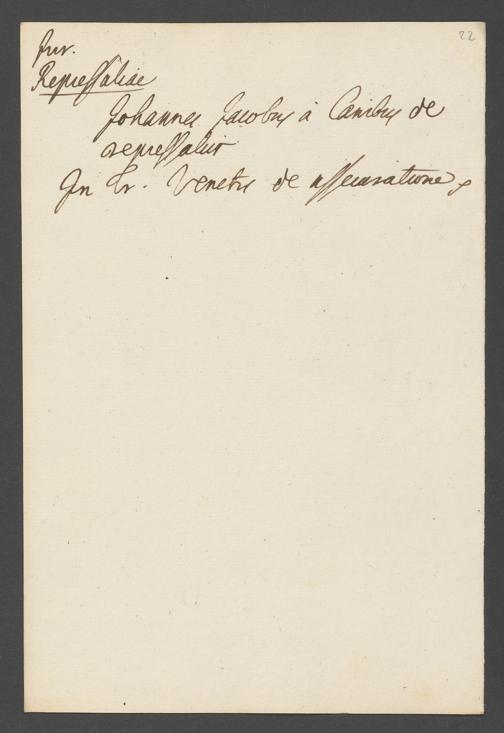 22
Jur.
Repressaliae
Johannes Jacobus à Canibus de
repressaliis
In Tr. Venetis de assecuratione